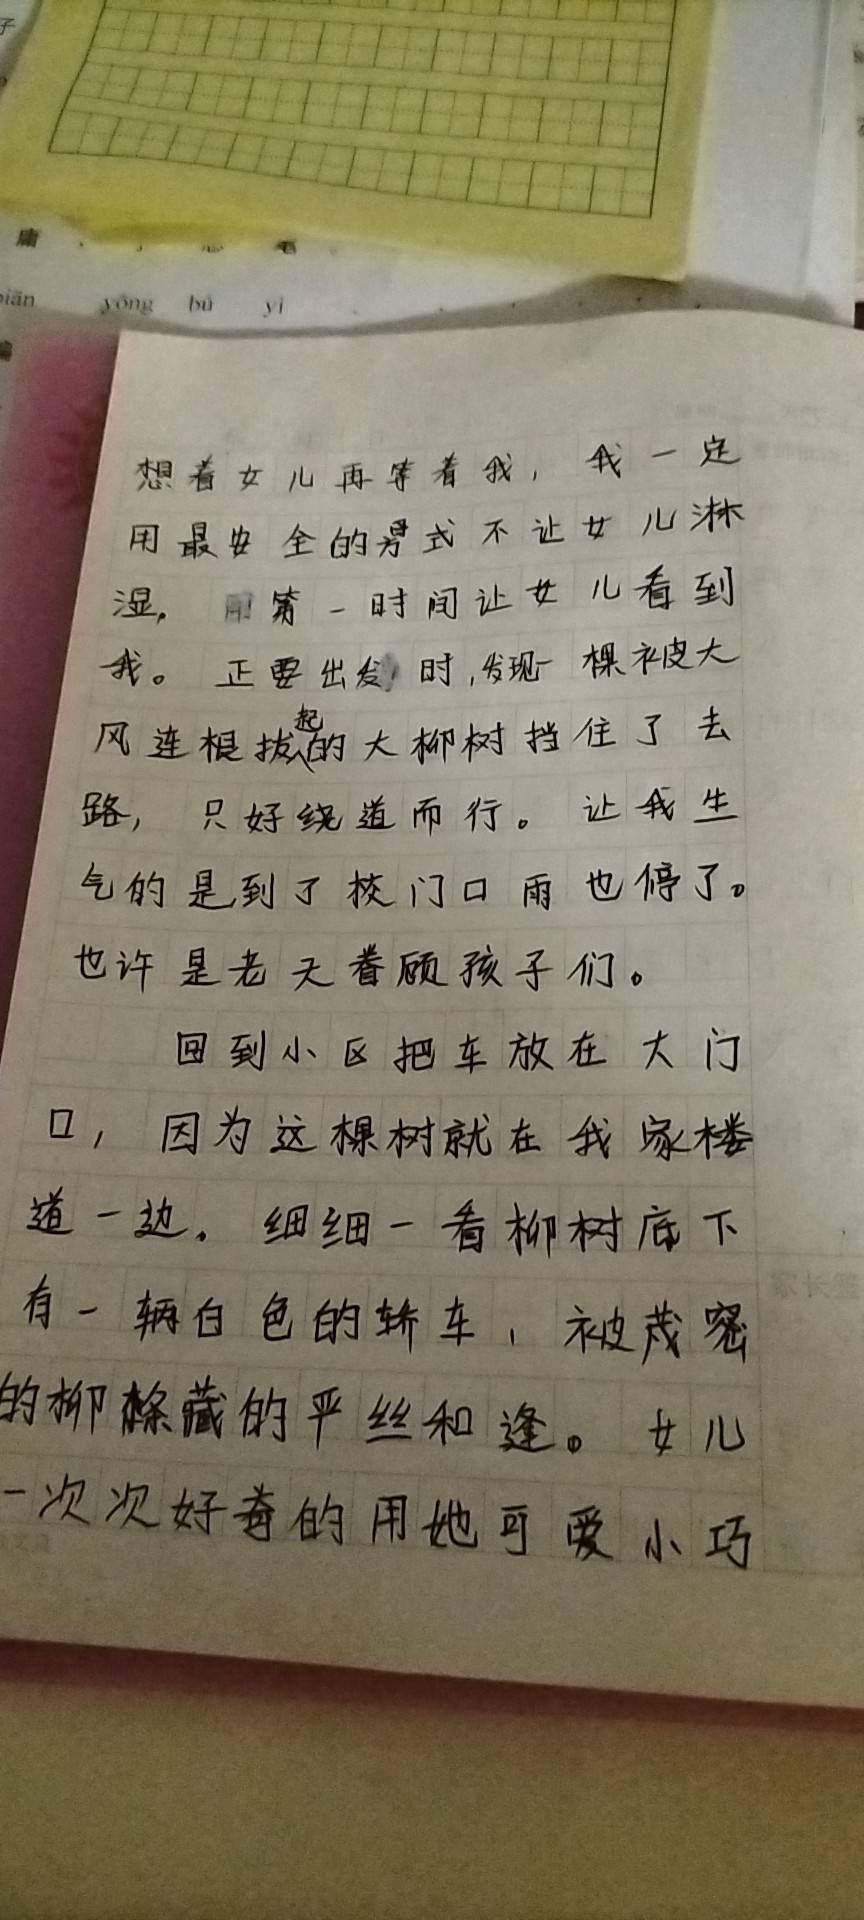 庸
yōng bù yì
想着女儿再等着我，我一定
用最安全的方式不让女儿淋
湿，用第一时间让女儿看到
我。正要出发时，发现一棵被大
风连根拔起的大柳树挡住了去
路，只好绕道而行。让我生
气的是到了校门口雨也停了。
也许是老天眷顾孩子们。
回到小区把车放在大门
口，因为这棵树就在我家楼
道一边。细细一看柳树底下
有一辆白色的轿车，被茂密
的柳条藏的严丝和逢。女儿
一次次好奇的用她可爱小巧
家长签